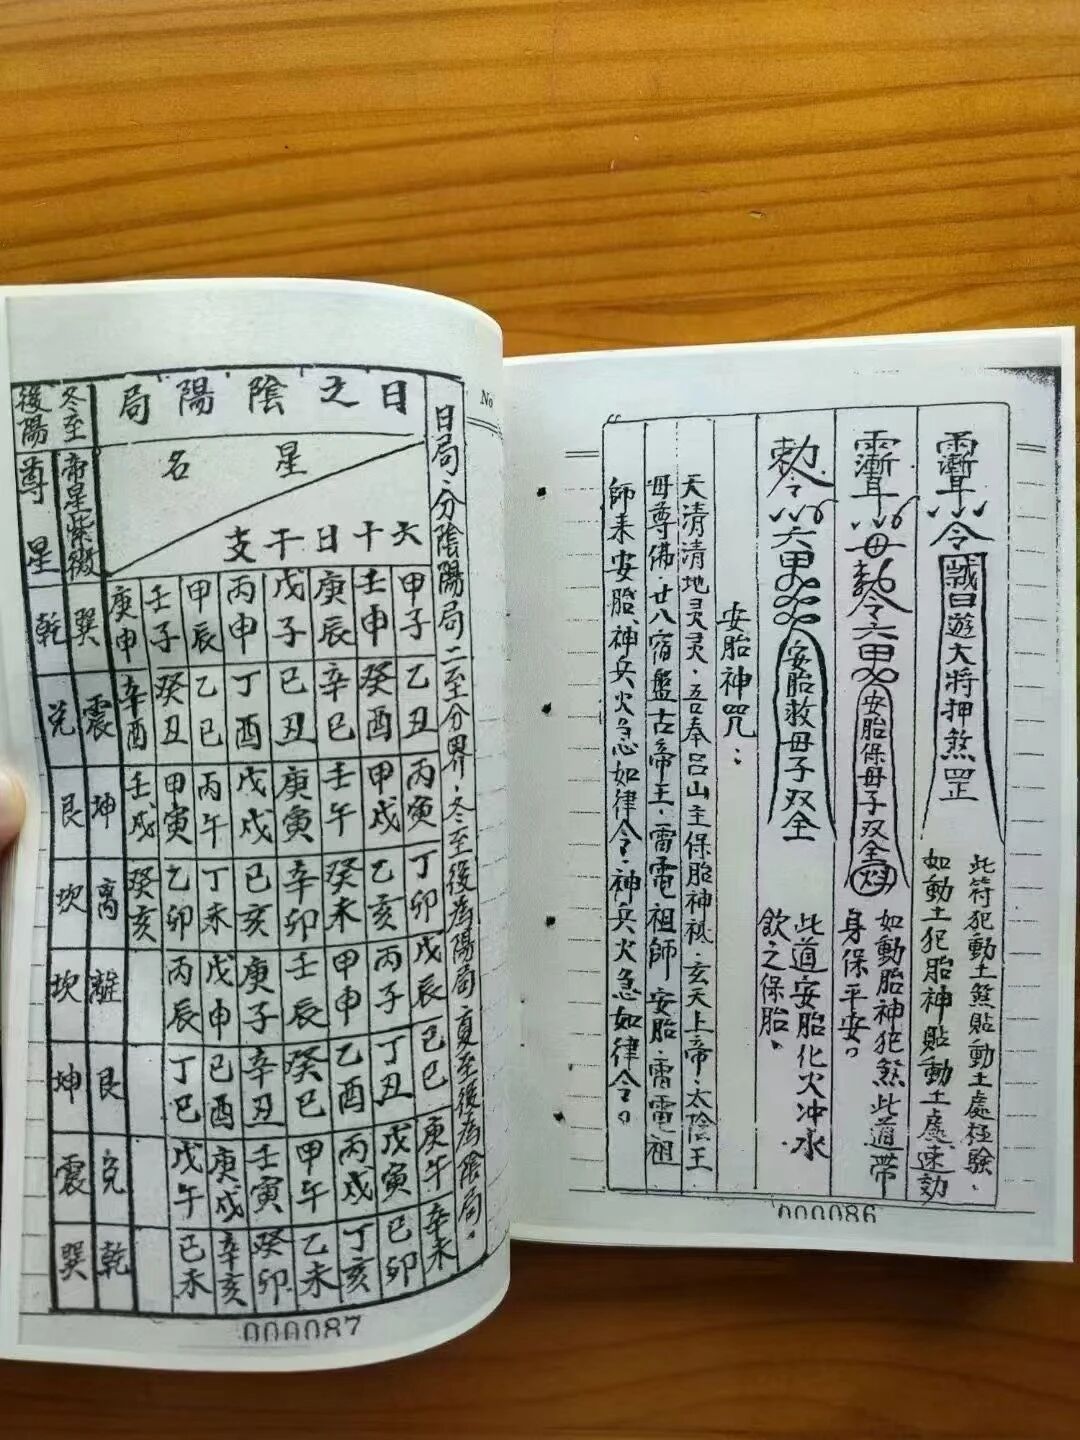 令
日遊大將押煞罡
此符犯動土煞貼動土處極驗．
如動土犯胎神貼動土處速効
母勅令六甲
安胎保母子双全
如動胎神犯煞此道帶
身保平安。
勅令六甲
安胎救母子双全
此道安胎化火冲水
飲之保胎。
安胎神咒：
天清清地灵灵．吾奉呂山主保胎神秘．玄天上帝．太陰王
母尊佛．廿八宿盤古帝王．雷電祖師 安胎．雷電祖
師来安胎．神兵火急如律令．神兵火急如律令。
000086
No
日局．分陰陽局二至分界．冬至後為陽局夏至後為陰局。
日之陰陽局
星名
六十日干支
甲子 乙丑 丙寅 丁卯 戊辰 己巳 庚午 辛未
壬申 癸酉 甲戌 乙亥 丙子 丁丑 戊寅 己卯
庚辰 辛巳 壬午 癸未 甲申 乙酉 丙戌 丁亥
戊子 己丑 庚寅 辛卯 壬辰 癸巳 甲午 乙未
丙申 丁酉 戊戌 己亥 庚子 辛丑 壬寅 癸卯
甲辰 乙巳 丙午 丁未 戊申 己酉 庚戌 辛亥
壬子 癸丑 甲寅 乙卯 丙辰 丁巳 戊午 己未
庚申 辛酉 壬戌 癸亥
冬至 帝星紫微 巽 震 坤 离 離 艮 兌 乾
後陽 尊星 乾 兌 艮 坎 坎 坤 震 巽
000087